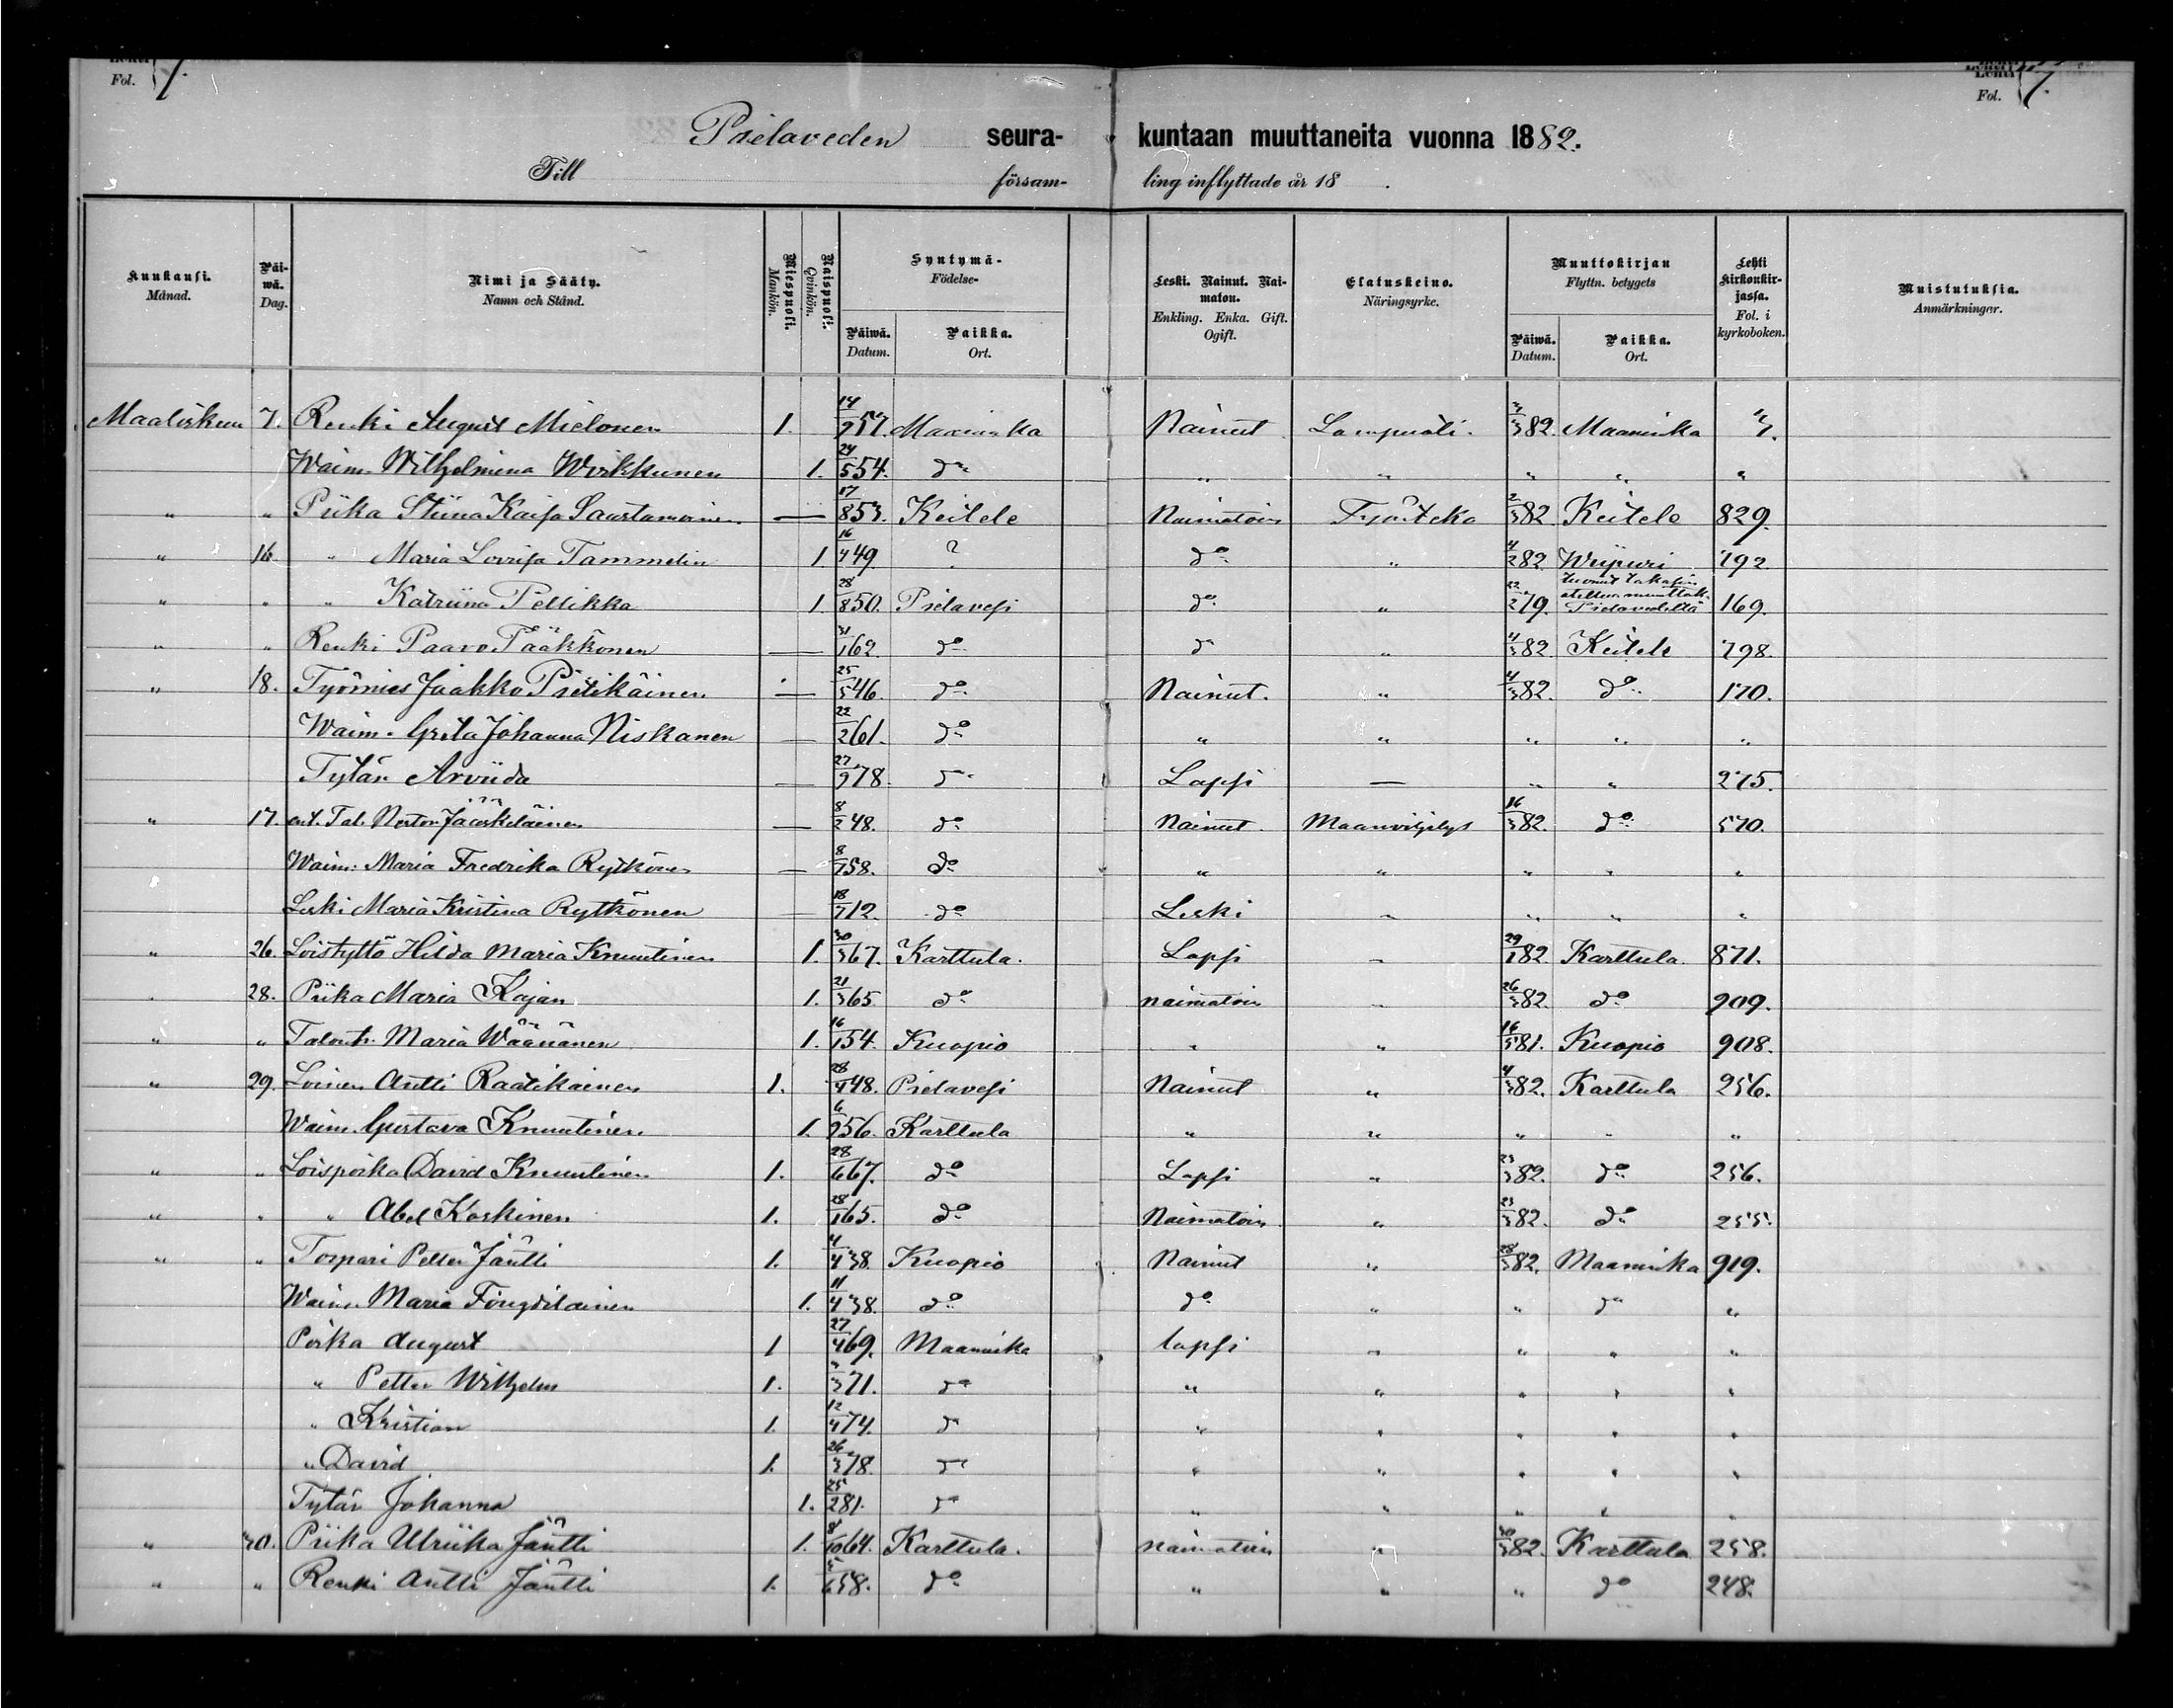 Lehti 7.
Fol.
Lehti 7.
Fol.
Pielaveden seura- kuntaan muuttaneita vuonna 1882.
Till församling inflyttade år 18 .
Kuukausi. Månad. Päiwä. Dag. Nimi ja Sääty. Namn och Stånd. Miespuoli. Mankön. Naispuoli. Qvinkön. Syntymä- Födelse- Päiwä. Datum. Paikka. Ort. Leski. Nainut. Naimaton. Enkling. Enka. Gift. Ogift. Elatuskeino. Näringsyrke. Muuttokirjan Flyttn. betygets Päiwä. Datum. Paikka. Ort. Lehti kirkonkirjassa. Fol. i kyrkoboken. Muistutuksia. Anmärkningar.
Maaliskuu 7. Renki August Mielonen 1. 14/9 57. Maaninka Nainut Lampuoti. 82. Maaninka 7.
Waim. Wilhelmina Wirkkunen 1. 24/5 54. do " " " " "
" " Piika Stiina Kaisa Saastamoinen — 17/8 53. Keitele Naimatoin Työnteko 2/3 82. Keitele 829.
" 16. " Maria Lovisa Tammelin 1 16/4 49 ? do " 4/2 82 Wiipuri 792.
" " " Katriina Pellikka 1. 28/8 50. Pielavesi do " 22/2 79. tuonut takasin muuttok. Pielavedeltä 169.
" " Renki Paavo Pääkkönen — 31/1 62. do do " 4/3 82. Keitele 798.
" 18. Työmies Jaakko Pietikäinen — 25/5 46. do Nainut. " 4/3 82. do 170.
Waim. Greta Johanna Niskanen — 22/2 61. do " " " " "
Tytär Arviida — 27/9 78. do Lapsi — " " 275.
" 17. ent. Tal. Nestor Jääskeläinen — 8/2 48. do Nainut. Maanviljelys 16/3 82. do 570.
Waim. Maria Fredrika Rytkönen — 8/7 58. do " " " " "
Leski Maria Kristina Rytkönen — 18/7 12. do Leski " " " "
" 26. Loistyttö Hilda Maria Knuutinen 1. 30/3 67. Karttula. Lapsi " 29/1 82. Karttula 871.
" 28. Piika Maria Kajan 1. 21/3 65 do naimatoin " 26/3 82. do 909.
" " Talontr. Maria Wäänänen 1. 16/1 54. Kuopio " " 16/5 81. Kuopio 908.
" 29. Loinen Antti Raatikainen 1. 28/4 48. Pielavesi Nainut " 4/3 82. Karttula 256.
Waim. Gustava Knuutinen 1. 6/9 56. Karttula " " " " "
" " Loispoika David Knuutinen 1. 28/6 67. do Lapsi " 23/3 82. do 256.
" " " Abel Koskinen 1. 28/1 65. do Naimatoin " 23/3 82. do 255.
" " Torpari Petter Jäntti 1. 4/4 38. Kuopio Nainut " 28/3 82. Maaninka 919.
Waim. Maria 1. 11/4 38. do do " " do "
Poika August 1 27/4 69. Maaninka lapsi " " " "
" Petter Wilhelm 1. 71. do " " " " "
" Kristian 1. 12/4 74. do " " " " "
" David 1. 26/3 78. do " " " " "
Tytär Johanna 1. 25/2 81. do " " " " "
" 30. Piika Ulriika Jäntti 1. 8/10 64. Karttula. naimatoin " 30/3 82. Karttula 258.
" " Renki Antti Jäntti 1. 5/6 58. do " " " do 248.